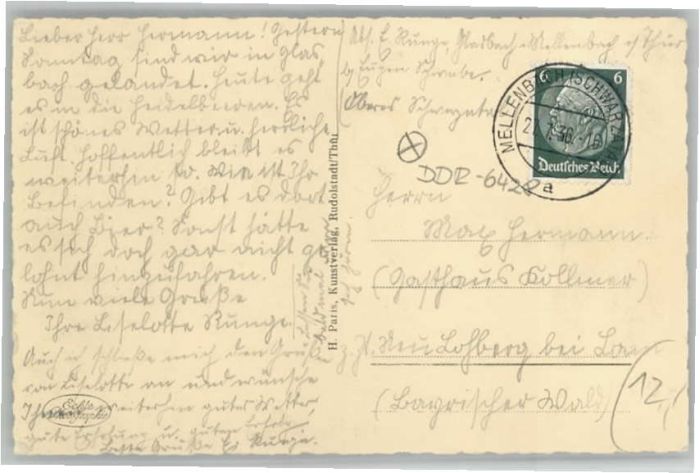 Lieber Herr Hermann! Gestern
Sonntag sind wir in Glas-
bach gelandet. Heute geht
es in die Heidelbeeren. Es
ist schönes Wetter u. herrliche
Luft. Hoffentlich bleibt es
weiterhin so. Wie ist Ihr
Befinden? Gibt es dort
auch Bier? Sonst hätte
es sich doch gar nicht ge-
lohnt hinzufahren.
Nun viele Grüße
Ihre Liselotte Runge
Auch ich schließe mich den Grüßen
von Liselotte an und wünsche
Ihnen weiterhin gutes Wetter,
gute Erholung u. guten Erfolg.
Beste Grüße E. Runge.
Echte
Photographie
H. Paris, Kunstverlag, Rudolstadt/Thür.
Abs. E. Runge, Glasbach-Mellenbach i/Thür
b/ Eugen
(Oberes Schwarzatal
MELLENBACH (SCHWARZA
7.36
a
6 6
Deutsches Reich
DDR-6422
Herrn
Max Hermann.
(Gasthaus Kollmer)
z. Zt. Neu Lohberg bei Lam
(Bayrischer Wald)
12,-